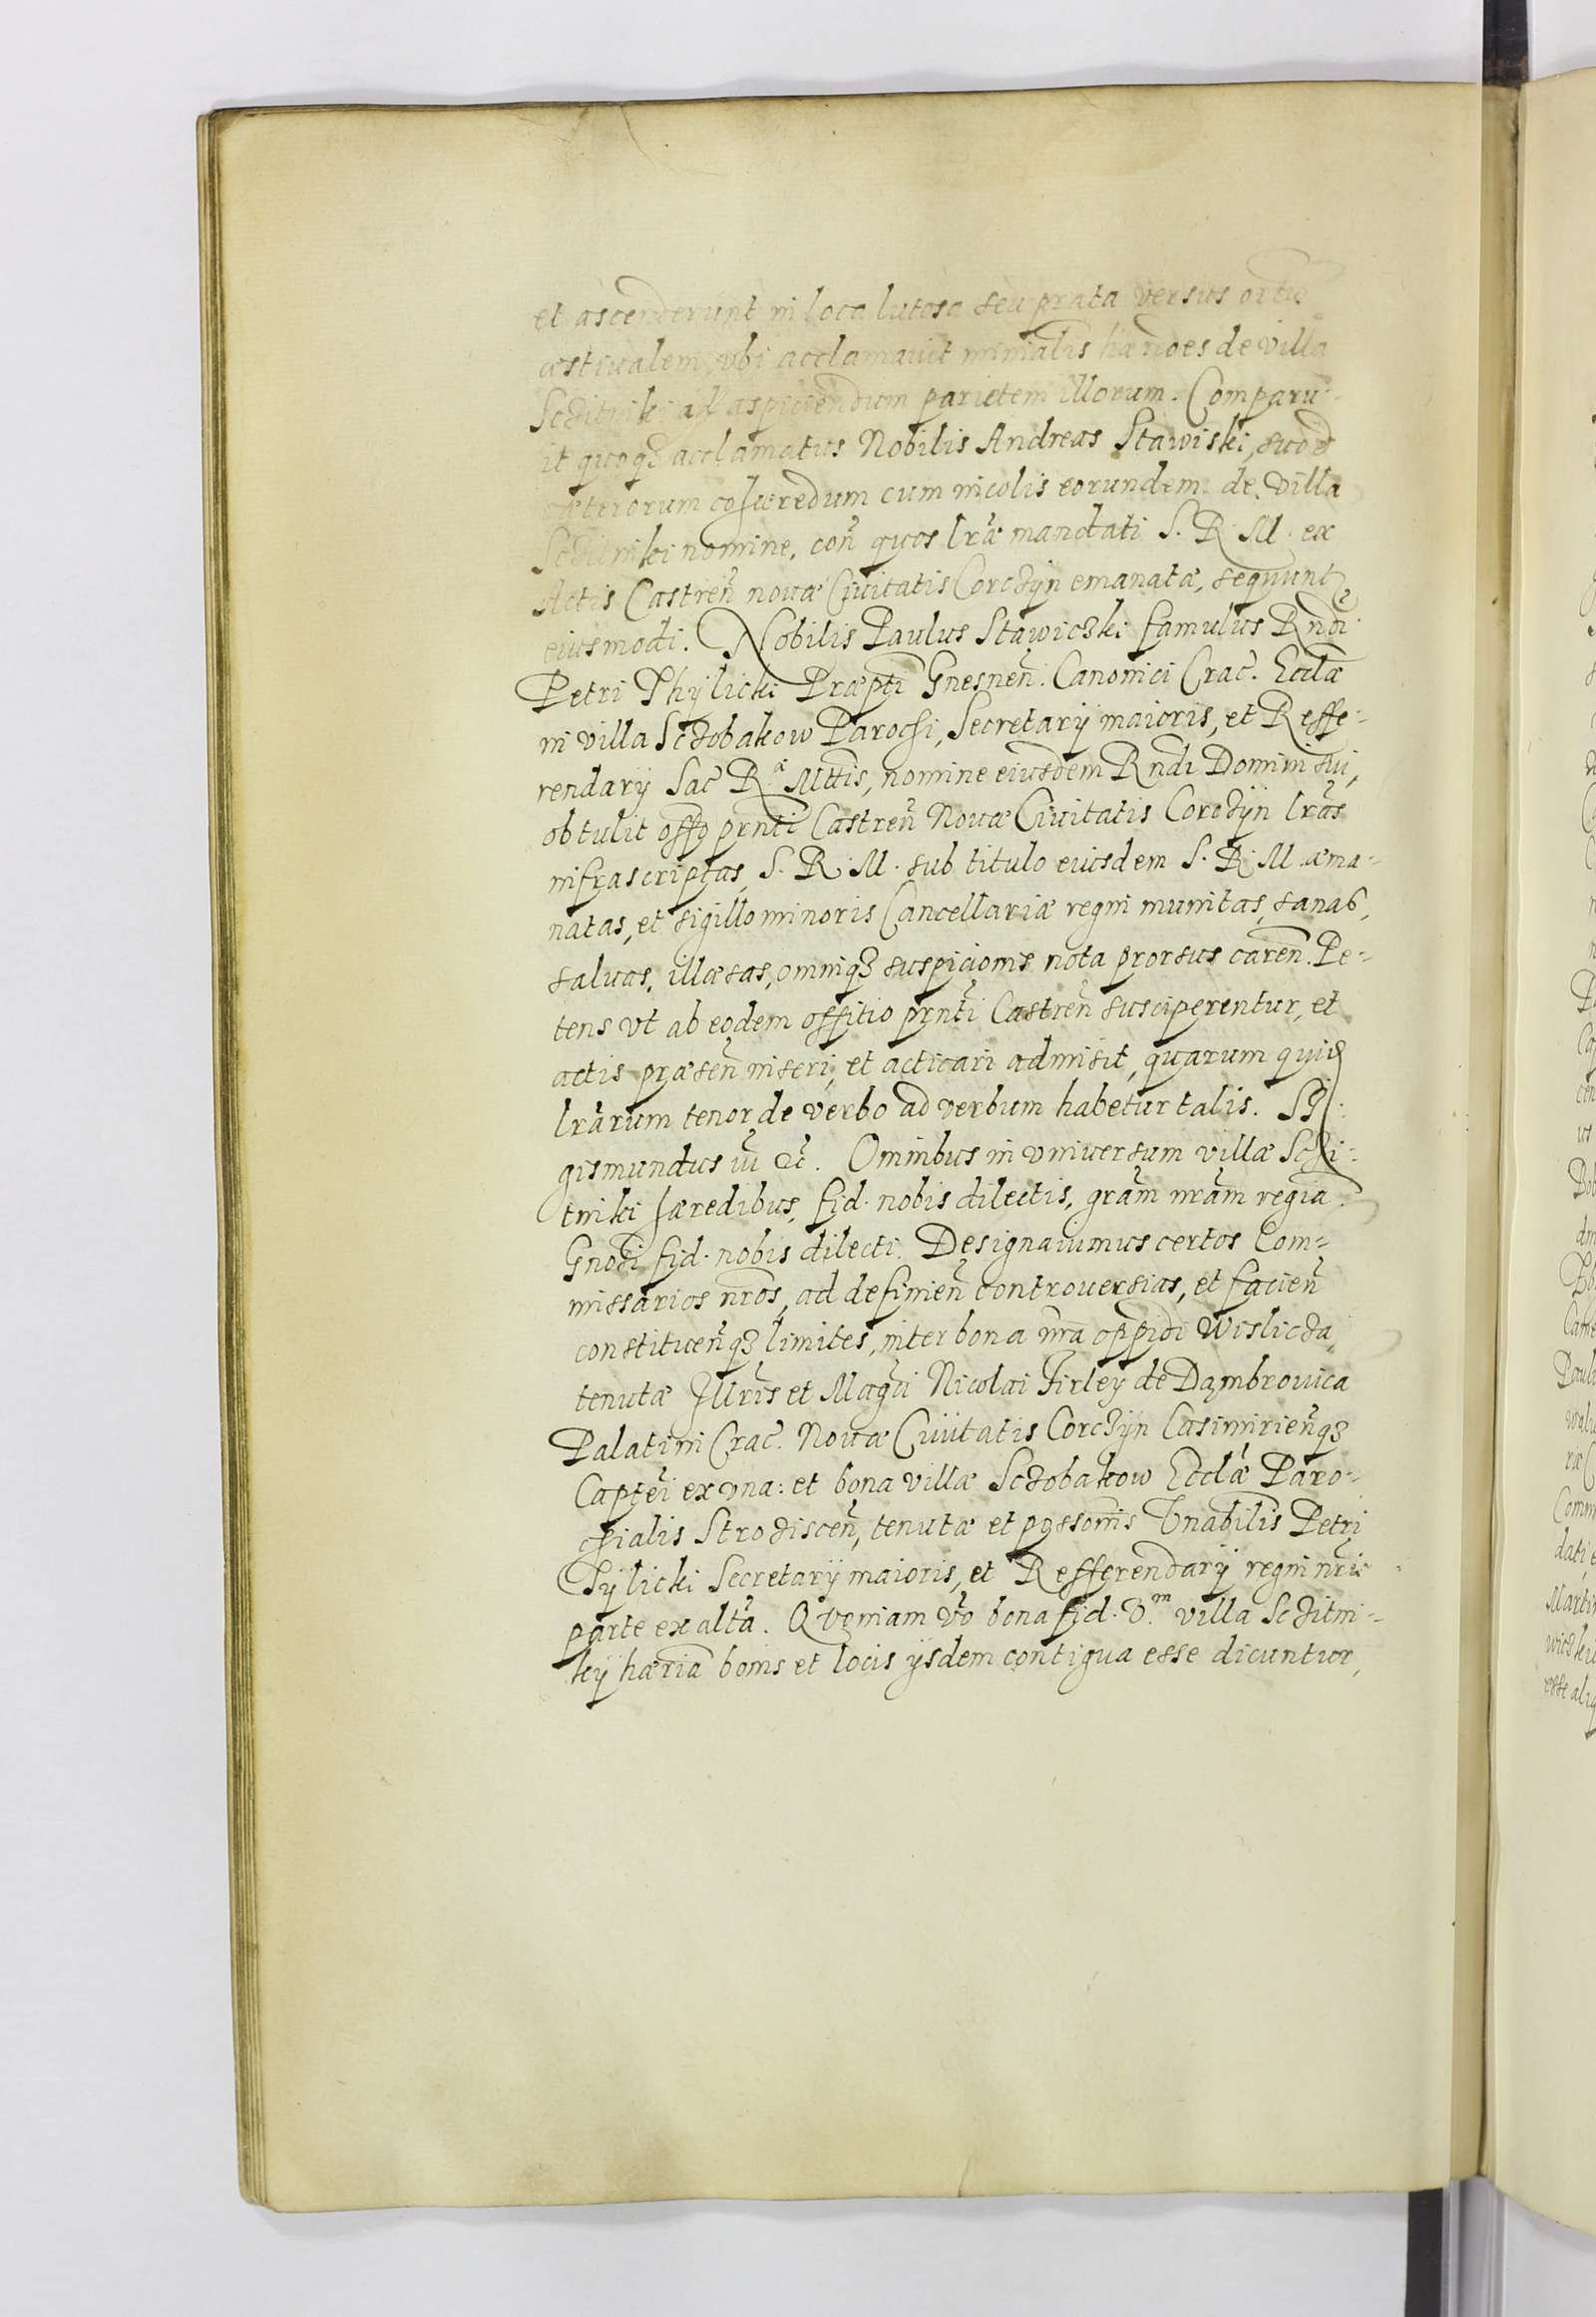 et ascenderunt in loca lutosa seu prata versus ortū
æstiualem, vbi acclamauit minralis hæredes de villa
Sczitniki ad aspiciendum parietem illorum. Comparu-
it quoqȝ acclamatus Nobilis Andreas Stawiski, suo et
cæterorum cohæredum cum incolis eorundem de villa
Sczitniki nomine, coñ quos lræ mandati S. R. M. ex
Actis Castreñ nouæ Ciuitatis Corczÿn emanatæ, sequunt
eiusmodi. Nobilis Paulus Stawiczki famulus Rndi
Petri Thÿlicki Præpti Gnesneñ. Canonici Crac. Ecclæ
in villa Sczobakow Parochi, Secretarÿ maioris, et Reffe-
rendarÿ Sac R.æ Mttis, nomine eiusdem Rndi Domini sui,
obtulit offo prnti Castreñ Nouæ Ciuitatis Corczÿn lras
infrascriptas, S. R. M. sub titulo eiusdem S. R. M. æma-
natas, et sigillo minoris Cancellariæ regni munitas, sanas,
saluas, illæsas, omniqȝ suspicionis nota prorsus careñ. Pe-
tens vt ab eodem offitio prnti Castreñ susciperentur, et
actis præseñ inseri, et acticari admisit, quarum quid
lrarum tenor de verbo ad verbum habetur talis. Si-
gismundus iii &c. Omnibus in vniuersum villæ Sczi-
tniki hæredibus, fid. nobis dilectis, gram nram regiā.
Gnosi fid. nobis dilecti. Designauimus certos Com-
missarios nros, ad definieñ controuersias, et facieñ
constitueñqȝ limites, inter bona nra oppidi Wislicza,
tenutæ Illris et Magci Nicolai Firleÿ de Dambrouica
Palatini Crac. Nouæ Ciuitatis Corczÿn Casimirieñqȝ
Captei ex vna: et bona villæ Sczobakow Ecclæ Paro-
chialis Strozisceñ, tenutæ et possonis Vnabilis Petri
Tÿlicki Secretarÿ maioris, et Refferendarÿ regni nri
parte ex altā. Quoniam vo bona fid. v.m villa Sczitni-
kÿ hæria bonis et locis ÿsdem contigua esse dicuntur,